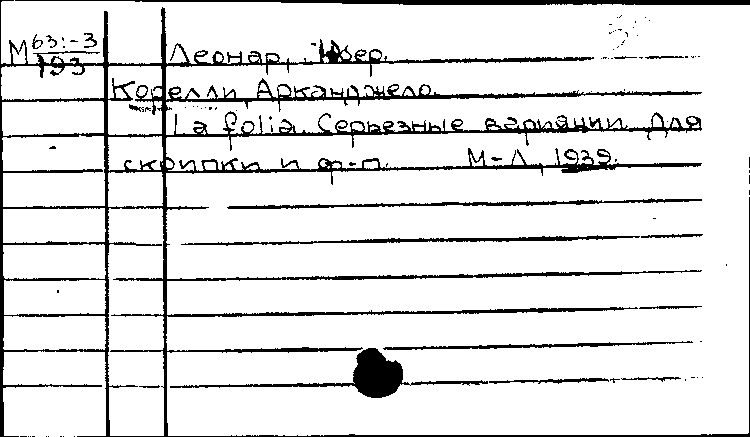 М 63:-3
193
Леонар, Юбер.
Корелли, Арканджело.
La folia. Серьезные вариации. Для
скрипки и ф-п. М-Л, 1939.